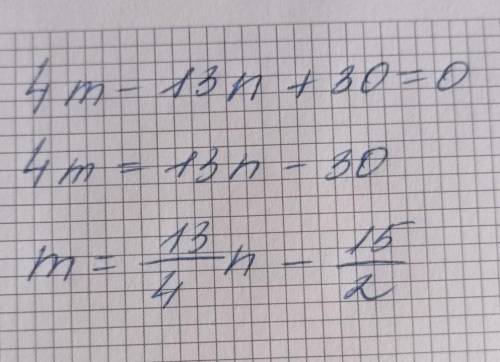 4m - 13n + 30 = 0
4m = 13n - 30
m = 13/4 n - 15/2